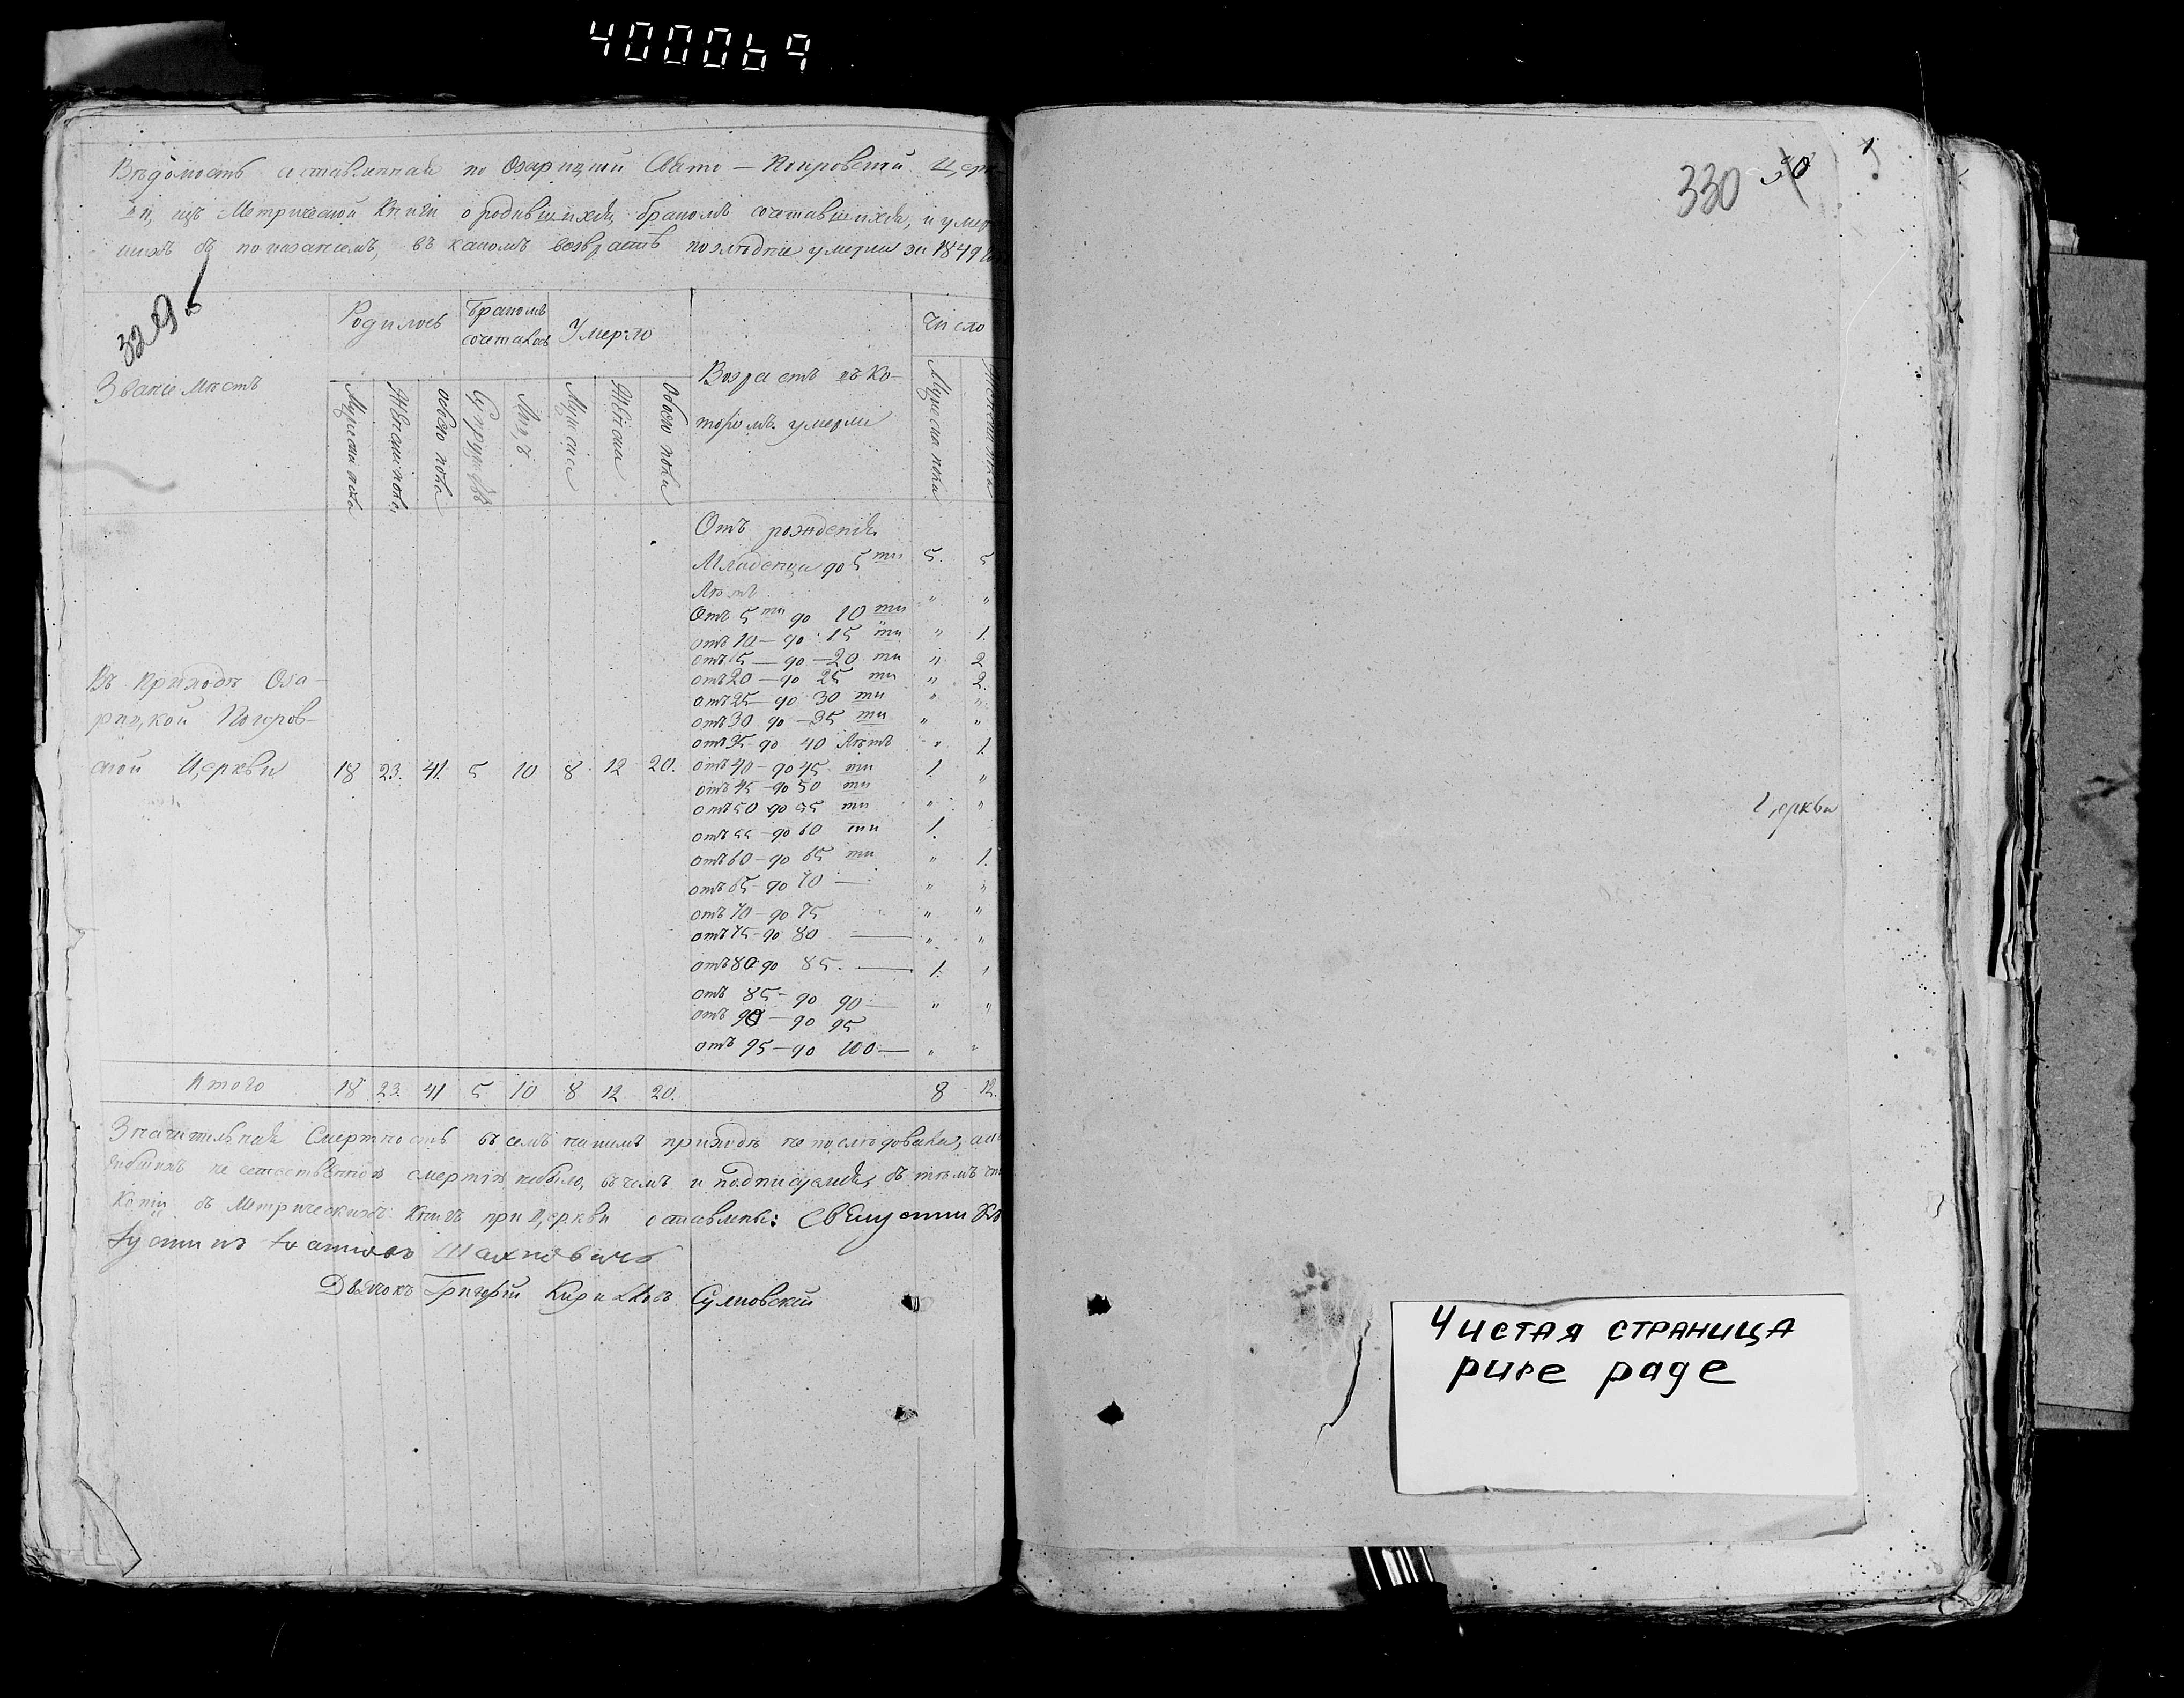 400069
Вѣдомость составленная по Озарицкой Свято — Покровской Цер
изъ Метрической Книги о родившихся бракомъ сочетавшихся, и умер
шихъ съ показаніемъ, въ какомъ возрастѣ послѣдніе умерли за 1849
329 об
Званіе Мѣстъ
Родилось
Бракомъ сочетавось
Умерло
Возрастъ въ ко-
торомъ умерли
Число
Мужеска пола
Женска пола
обоего пола
Супружествъ
Лицъ
Мужеска
Женска
Обоего пола
Мужеска пола
Женска пола
Отъ рожденія
Младенцы до 5 ти 5. 5
Лѣтъ " "
Отъ 5 ти до 10 ти
отъ 10 — до 15 ти " 1.
отъ 15 — до — 20 ти " 2
отъ 20 — до 25 ти " 2.
отъ 25 — до 30 ти " "
отъ 30 до — 35 ти " "
отъ 35 — до 40 Лѣтъ " 1.
отъ 40 — до 45 ти 1. "
отъ 45 — до 50 ти
отъ 50 до 55 ти " "
отъ 55 — до 60 ти 1.
отъ 60 — до 65 ти " 1.
отъ 65 — до 70 — " "
отъ 70 — до 75 " "
отъ 75 — до 80 — " "
отъ 80 до 85. — 1. "
отъ 85 — до 90 — " "
отъ 90 — до 95
отъ 95 — до 100 — " "
Въ приходѣ Оза-
рицкой Покров-
ской Церкви 18 23. 41. 5 10 8 12 20.
Итого 18 23. 41 5 10 8 12 20. 8 12.
Значительная Смертность въ семъ приходѣ не послѣдовала,
не естественною смертію небыло, въ чемъ и подписуемся, съ тѣмъ
Копіи съ Метрическихъ Книгъ при Церкви оставлены: Священникъ
Іустинъ Іоанновъ Шахновичъ
Дьячокъ Григорій Кириловъ Сулковскій
330 30
Церкви
Чистая страница
pure page